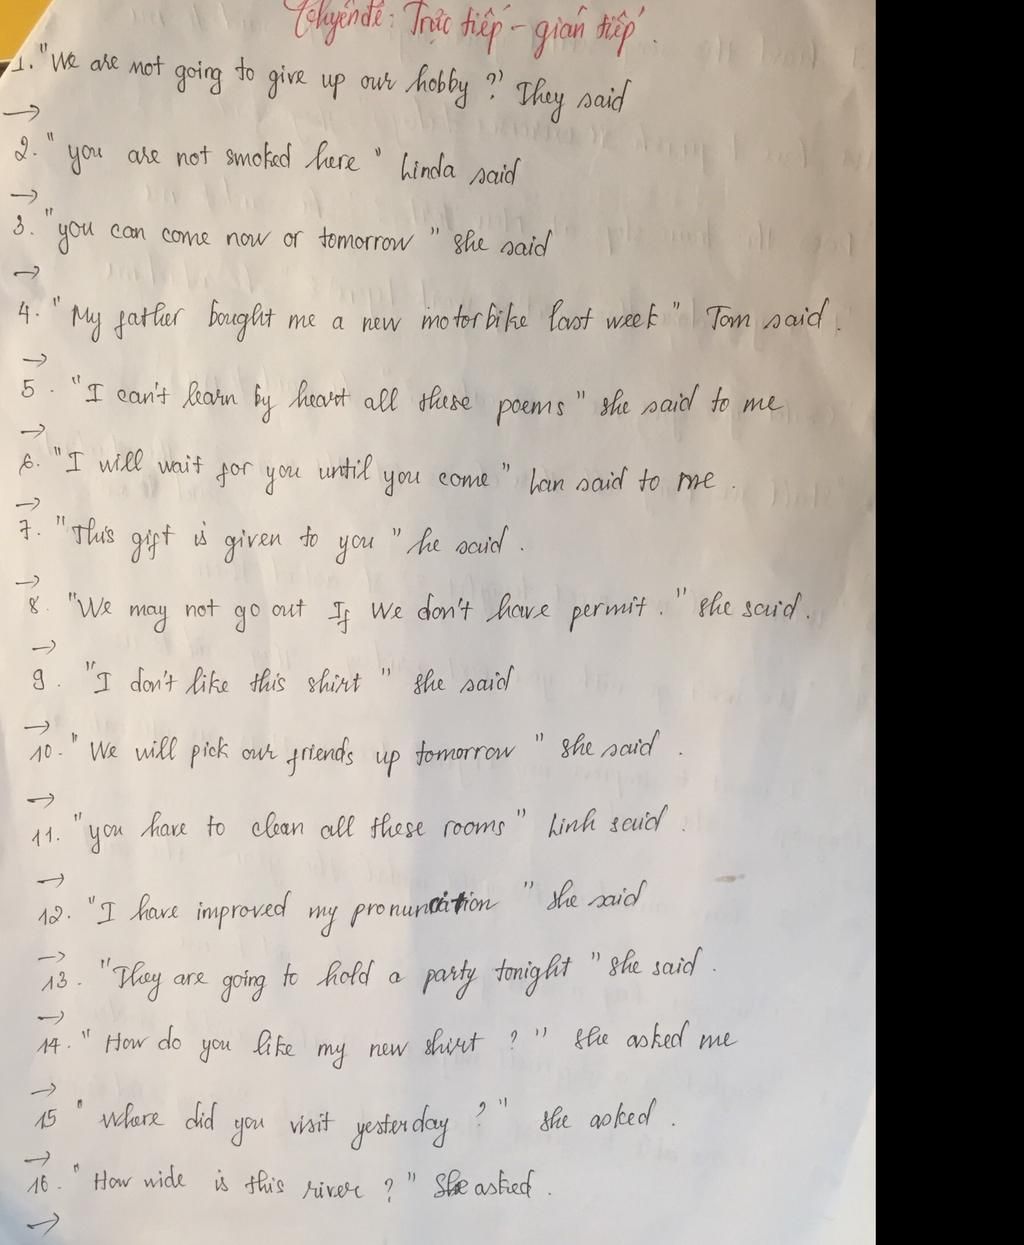 Chuyên đề: Trực tiếp - gián tiếp.
1. "We are not going to give up our hobby?" They said
→
2. "you are not smoked here" Linda said
→
3. "you can come now or tomorrow" she said
→
4. "My father bought me a new motorbike last week" Tom said.
→
5. "I can't learn by heart all these poems" she said to me
→
6. "I will wait for you until you come" Lan said to me.
→
7. "This gift is given to you" he said.
→
8. "We may not go out If we don't have permit." she said.
→
9. "I don't like this shirt" she said
→
10. "We will pick our friends up tomorrow" she said.
→
11. "you have to clean all these rooms" Linh said.
→
12. "I have improved my pronunciation" she said
→
13. "They are going to hold a party tonight" she said.
→
14. "How do you like my new shirt?" she asked me
→
15 "Where did you visit yesterday?" she asked.
→
16. "How wide is this river?" She asked.
→